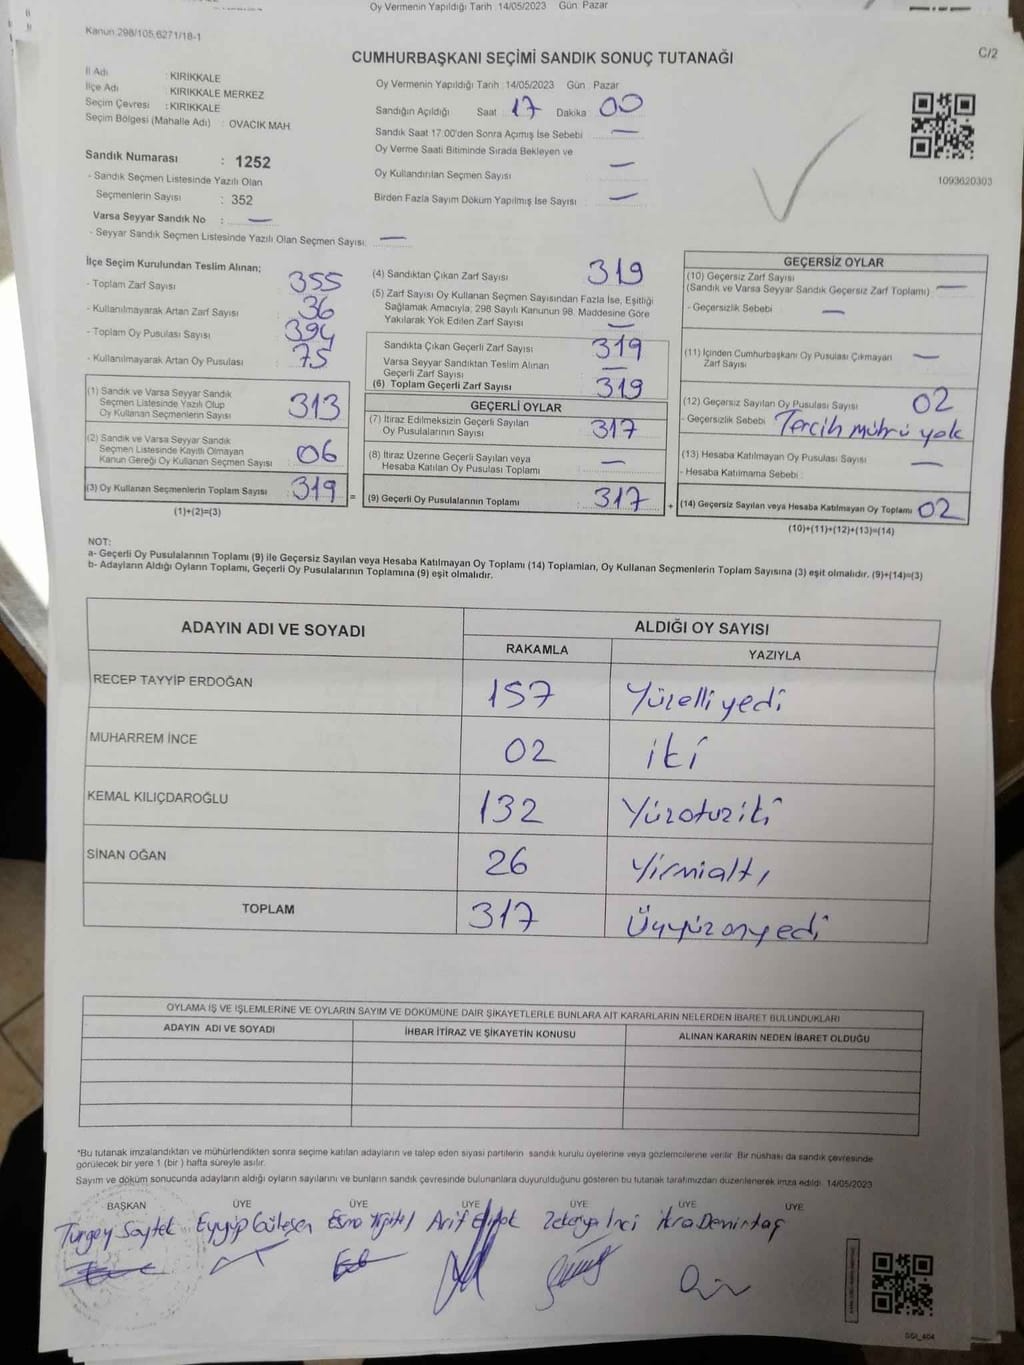 Oy Vermenin Yapıldığı Tarih :14/05/2023 Gün: Pazar
Kanun 298/105,6271/18-1
C/2
CUMHURBAŞKANI SEÇİMİ SANDIK SONUÇ TUTANAĞI
İl Adı : KIRIKKALE
İlçe Adı : KIRIKKALE MERKEZ
Seçim Çevresi : KIRIKKALE
Seçim Bölgesi (Mahalle Adı) : OVACIK MAH.
Sandık Numarası : 1252
- Sandık Seçmen Listesinde Yazılı Olan
Seçmenlerin Sayısı : 352
Varsa Seyyar Sandık No : —
- Seyyar Sandık Seçmen Listesinde Yazılı Olan Seçmen Sayısı: —
Oy Vermenin Yapıldığı Tarih :14/05/2023 Gün : Pazar
Sandığın Açıldığı Saat 17 Dakika 00
Sandık Saat 17:00'den Sonra Açımış İse Sebebi —
Oy Verme Saati Bitiminde Sırada Bekleyen ve
Oy Kullandırılan Seçmen Sayısı —
Birden Fazla Sayım Döküm Yapılmış İse Sayısı —
1093620303
İlçe Seçim Kurulundan Teslim Alınan;
- Toplam Zarf Sayısı : 355
- Kullanılmayarak Artan Zarf Sayısı : 36
- Toplam Oy Pusulası Sayısı : 394
- Kullanılmayarak Artan Oy Pusulası : 75
(1) Sandık ve Varsa Seyyar Sandık
Seçmen Listesinde Yazılı Olup
Oy Kullanan Seçmenlerin Sayısı : 313
(2) Sandık ve Varsa Seyyar Sandık
Seçmen Listesinde Kayıtlı Olmayan
Kanun Gereği Oy Kullanan Seçmen Sayısı : 06
(3) Oy Kullanan Seçmenlerin Toplam Sayısı : 319 =
(1)+(2)=(3)
(4) Sandıktan Çıkan Zarf Sayısı 319
(5) Zarf Sayısı Oy Kullanan Seçmen Sayısından Fazla İse, Eşitliği
Sağlamak Amacıyla, 298 Sayılı Kanunun 98. Maddesine Göre
Yakılarak Yok Edilen Zarf Sayısı —
Sandıkta Çıkan Geçerli Zarf Sayısı 319
Varsa Seyyar Sandıktan Teslim Alınan
Geçerli Zarf Sayısı —
(6) Toplam Geçerli Zarf Sayısı 319
GEÇERLİ OYLAR
(7) İtiraz Edilmeksizin Geçerli Sayılan
Oy Pusulalarının Sayısı 317
(8) İtiraz Üzerine Geçerli Sayılan veya
Hesaba Katılan Oy Pusulası Toplamı —
(9) Geçerli Oy Pusulalarının Toplamı 317 +
GEÇERSİZ OYLAR
(10) Geçersiz Zarf Sayısı
(Sandık ve Varsa Seyyar Sandık Geçersiz Zarf Toplamı) —
- Geçersizlik Sebebi : —
(11) İçinden Cumhurbaşkanı Oy Pusulası Çıkmayan
Zarf Sayısı —
(12) Geçersiz Sayılan Oy Pusulası Sayısı 02
- Geçersizlik Sebebi Tercih mührü yok
(13) Hesaba Katılmayan Oy Pusulası Sayısı —
- Hesaba Katılmama Sebebi :
(14) Geçersiz Sayılan veya Hesaba Katılmayan Oy Toplamı 02
(10)+(11)+(12)+(13)=(14)
NOT:
a- Geçerli Oy Pusulalarının Toplamı (9) ile Geçersiz Sayılan veya Hesaba Katılmayan Oy Toplamı (14) Toplamları, Oy Kullanan Seçmenlerin Toplam Sayısına (3) eşit olmalıdır. (9)+(14)=(3)
b- Adayların Aldığı Oyların Toplamı, Geçerli Oy Pusulalarının Toplamına (9) eşit olmalıdır.
ADAYIN ADI VE SOYADI
ALDIĞI OY SAYISI
RAKAMLA YAZIYLA
RECEP TAYYİP ERDOĞAN 157 Yüzelliyedi
MUHARREM İNCE 02 iki
KEMAL KILIÇDAROĞLU 132 Yüzotuziki
SİNAN OĞAN 26 Yirmialtı
TOPLAM 317 Üçyüzonyedi
OYLAMA İŞ VE İŞLEMLERİNE VE OYLARIN SAYIM VE DÖKÜMÜNE DAİR ŞİKAYETLERLE BUNLARA AİT KARARLARIN NELERDEN İBARET BULUNDUKLARI
ADAYIN ADI VE SOYADI İHBAR İTİRAZ VE ŞİKAYETİN KONUSU ALINAN KARARIN NEDEN İBARET OLDUĞU
*Bu tutanak imzalandıktan ve mühürlendikten sonra seçime katılan adayların ve talep eden siyasi partilerin sandık kurulu üyelerine veya gözlemcilerine verilir. Bir nüshası da sandık çevresinde
görülecek bir yere 1 (bir ) hafta süreyle asılır.
Sayım ve döküm sonucunda adayların aldığı oyların sayılarını ve bunların sandık çevresinde bulunanlara duyurulduğunu gösteren bu tutanak tarafımızdan düzenlenerek imza edildi. 14/05/2023
BAŞKAN ÜYE ÜYE ÜYE ÜYE ÜYE ÜYE
Turgay Soytek Eyyüp Güleşen Esma Yiğitel Arif Zekeriya İnci İkra Demirtaş
GSI_404